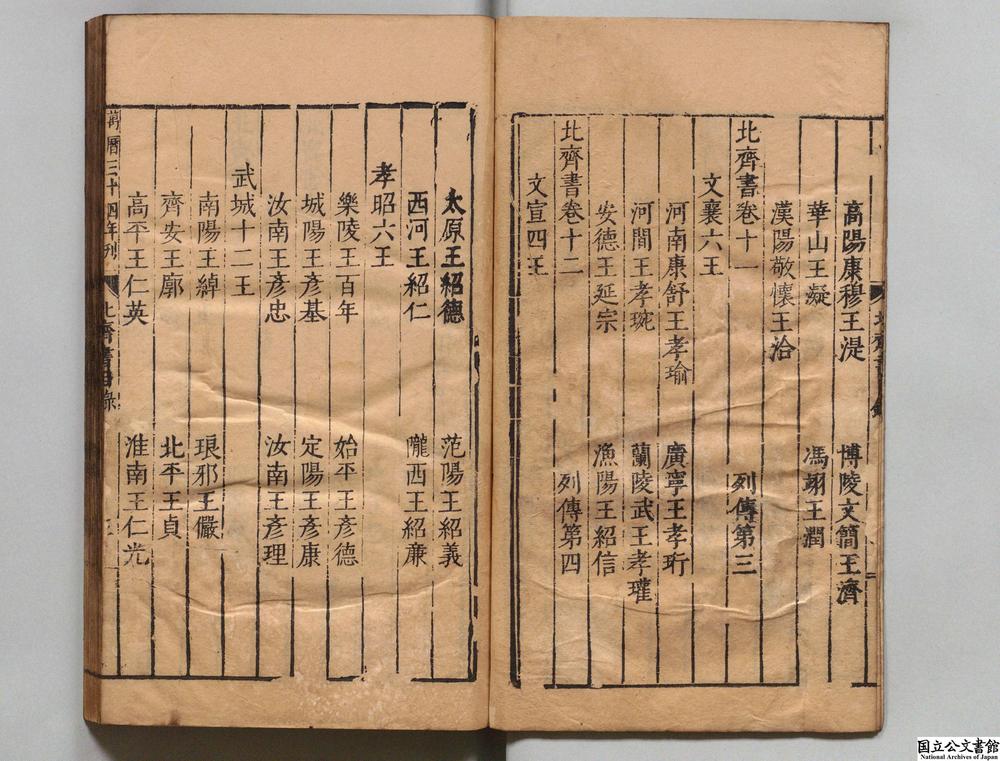 高陽康穆王湜　博陵文簡王濟
華山王凝　馮翊王潤
漢陽敬懷王洽
北齊書卷十一　列傳第三
文襄六王
河南康舒王孝瑜　廣寧王孝珩
河間王孝琬　蘭陵武王孝瓘
安德王延宗　漁陽王紹信
北齊書卷十二　列傳第四
文宣四王
太原王紹德　范陽王紹義
西河王紹仁　隴西王紹廉
孝昭六王
樂陵王百年　始平王彦德
城陽王彦基　定陽王彦康
汝南王彦忠　汝南王彦理
武城十二王
南陽王綽　琅邪王儼
齊安王廓　北平王貞
高平王仁英　淮南王仁光
萬曆三十四年刊　北齊書目錄　三
国立公文書館
National Archives of Japan